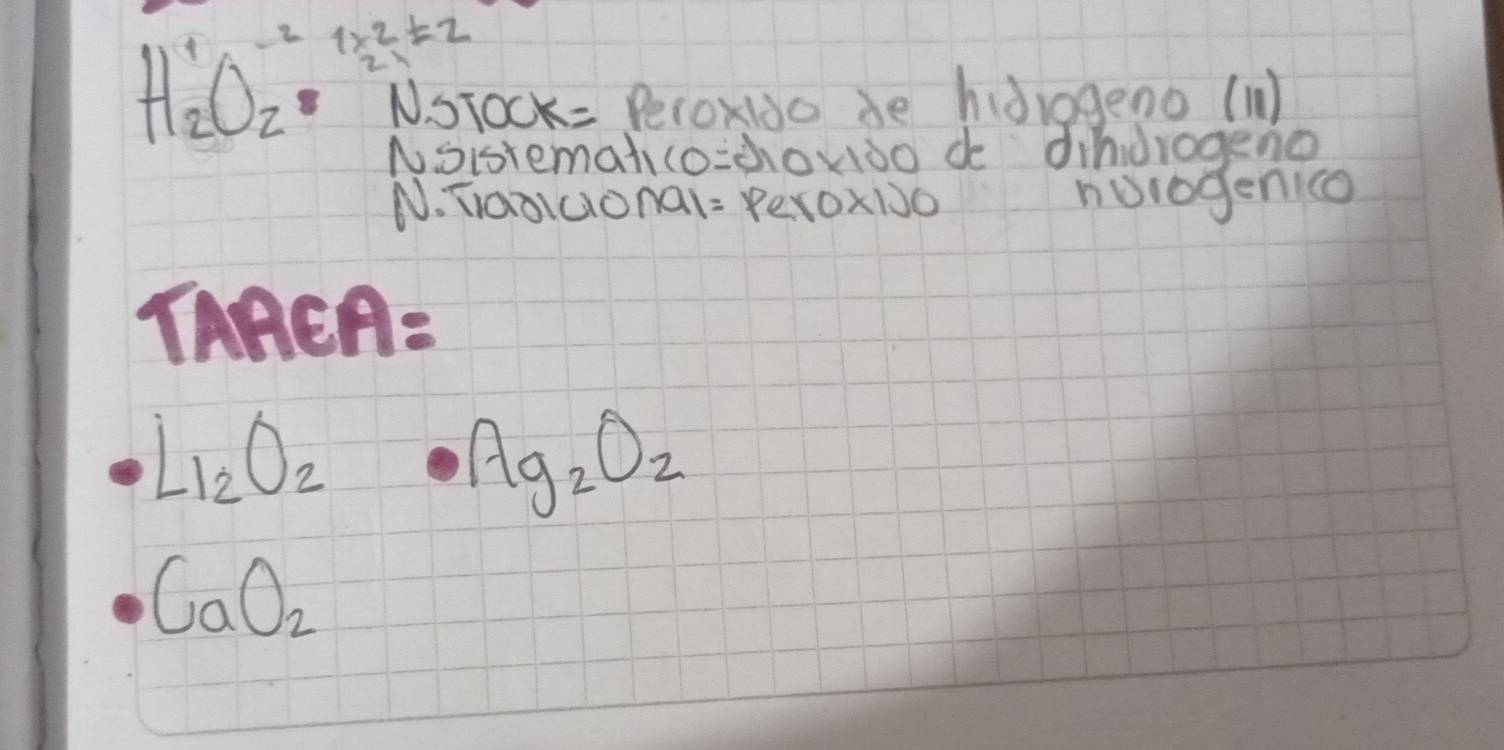 H₂⁺¹O₂⁻² 1x2=2
N.STOCK= Peroxido de hidrogeno (II)
N.Sistematico=dioxido de dihidrogeno
N.Tradicional= Peroxido hidrogenico
TAREA:
•Li₂O₂ •Ag₂O₂
•CaO₂